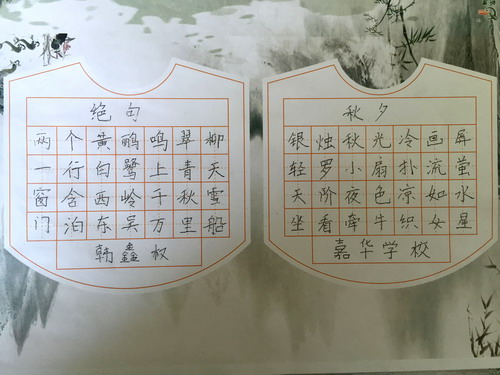 绝句
两个黄鹂鸣翠柳
一行白鹭上青天
窗含西岭千秋雪
门泊东吴万里船
韩鑫权
秋夕
银烛秋光冷画屏
轻罗小扇扑流萤
天阶夜色凉如水
坐看牵牛织女星
嘉华学校